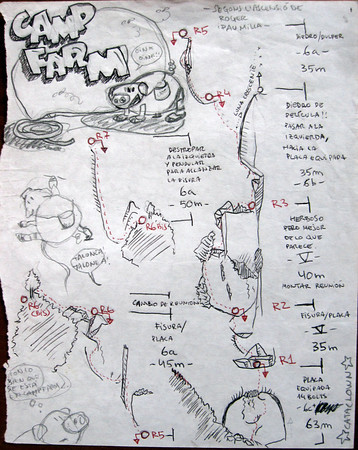 CAMP
FARM
OINK
OINK!
SEGONS L'ASCENSIÓ DE
ROGER
I PAUMILLA -
R5
DIEDRO/DULFER
- 6a -
35m
R4
LUNA CRECIENTE
DIEDRO DE
PELÍCULA!!
PASAR A LA
IZQUIERDA,
HACIA LA
PLACA EQUIPADA
35m
- 6b -
R7
DESTREPAR
A LA IZQUIERDA
Y PENDULAR
PARA ALCANZAR
LA FISURA
6a
- 50m -
R6 BIS
R3
HERBOSO
PERO MEJOR
DE LO QUE
PARECE
V
40m
MONTAR REUNIÓN
R6
(BIS)
R6
CAMBIO DE REUNIÓN
FISURA/
PLACA
6a
- 45m -
R5
R2
FISURA/PLACA
V
35m
R1
PLACA
EQUIPADA
14 BOLTS
63m
CATACLOWN